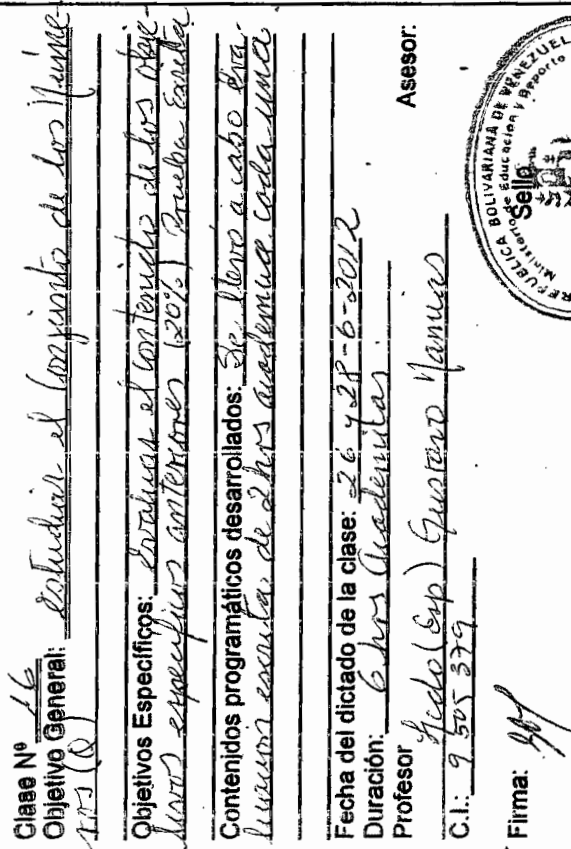 Clase Nº 16
Objetivo General: estudiar el Conjunto de los Núme-
ros (Q)
Objetivos Específicos: evaluar el contenido de los obje-
tivos específicos anteriores (20%) Prueba Escrita
Contenidos programáticos desarrollados: Se llevó a cabo eva-
luación escrita de 2 hrs academica cada una
Fecha del dictado de la clase: 26 y 28-6-2012
Duración: 6 hrs Academicas.
Profesor Licdo (Esp) Gustavo Asesor:
C.I.: 9.505.379
Firma:
REPUBLICA BOLIVARIANA DE VENEZUEL
Ministerio de Educación y Deporte
Sello